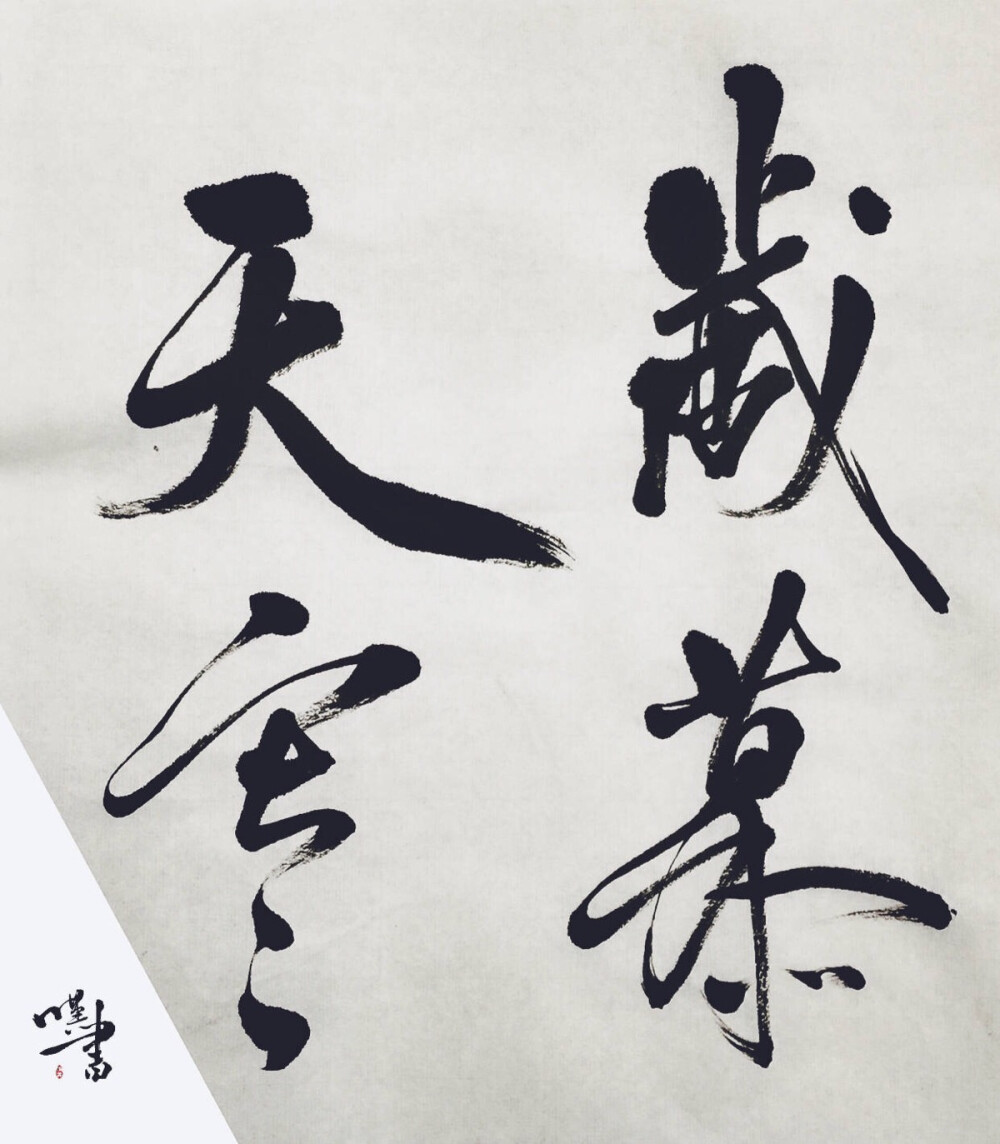 歲慕
天寒
嘆書